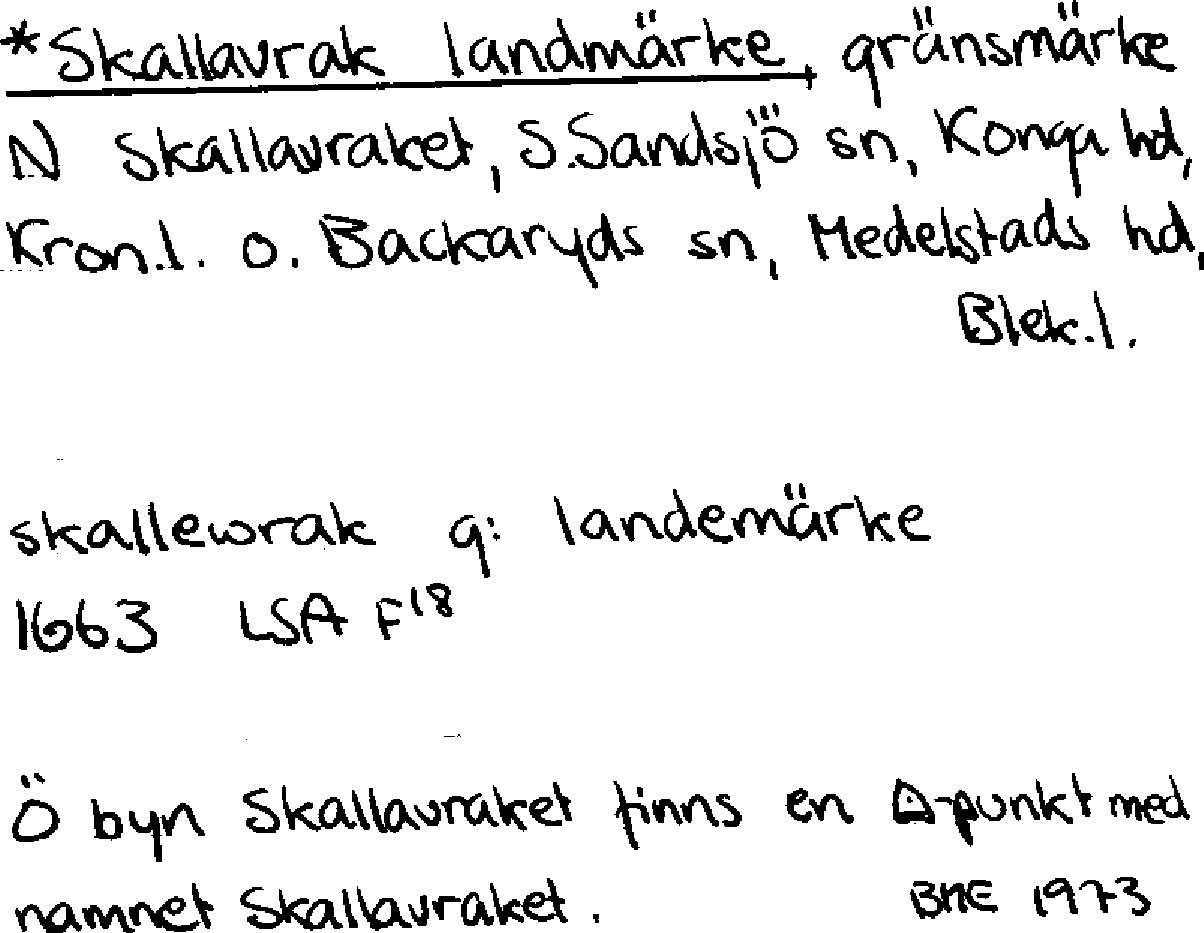 *Skallavrak landmärke, gränsmärke
N Skallavraket, S.Sandsjö sn, Konga hd,
Kron.l. o. Backaryds sn, Medelstads hd,
Blek.l.
skallewrak q: landemärke
1663 LSA F18
Ö byn Skallavraket finns en △-punkt med
namnet Skallavraket. BME 1973